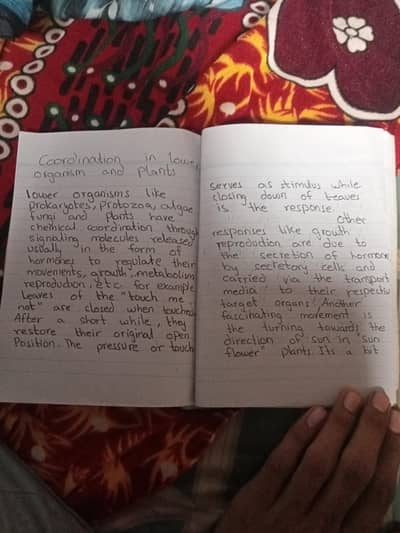 Coordination in lower
organism and Plants
lower organisms like
prokaryotes, Protozoa, algae
fungi and Plants have
chemical coordination through
signaling molecules released
usually in the form of
hormones to regulate their
movements, growth, metabolism
reproduction, etc. for example
leaves of the "touch me
not" are closed when touched
After a short while, they
restore their original open
Position. The pressure or touch
serves as stimulus while
closing down of leaves
is the response.
Other
responses like growth
reproduction are due to
the secretion of hormone
by secretory cells and
carried via the transport
media to their respective
target organs. Another
fascinating movement is
the turning towards the
direction of sun in "sun
flower" plants. Its a bit